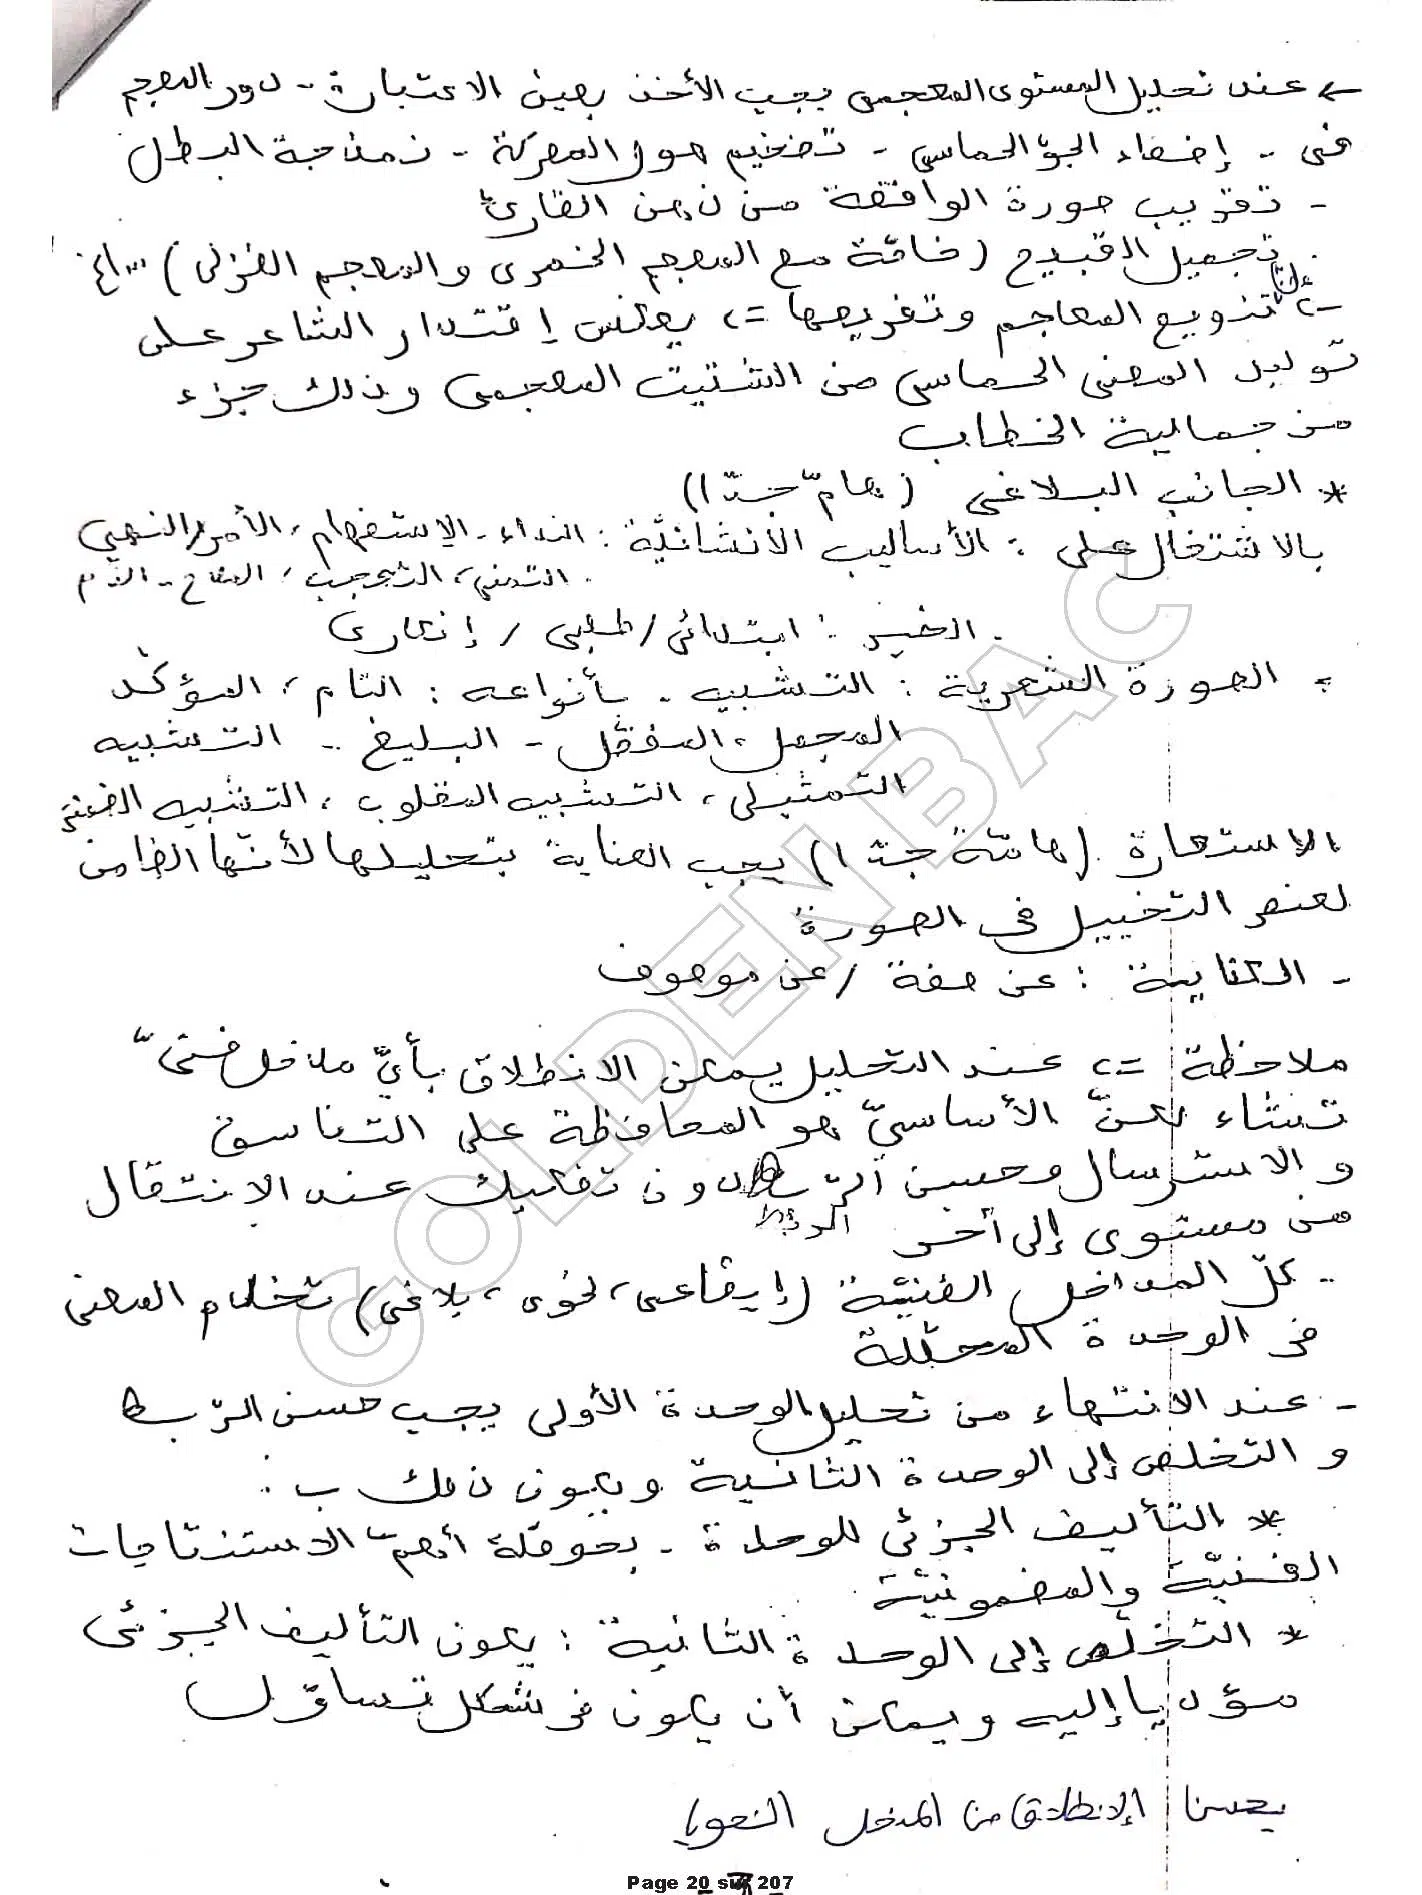 ← عند تحليل المستوى المعجمي يجب الأخذ بعين الاعتبار - دور المعجم
في - إضفاء الجوّ الحماسي - تضخيم هول المعركة - نمذجة البطل
- تقريب صورة الواقعة من ذهن القارئ
- تجميل القبيح (خاصّة مع المعجم الخمري والمعجم الغزلي) ... الخ
- تنويع المعاجم وتفريعها => يعكس إقتدار الشاعر على
توليد المعنى الحماسي من الشتيت المعجمي وذلك جزء
من جمالية الخطاب
* الجانب البلاغي (هامّ جدّا)
بالاشتغال على : الأساليب الانشائيّة : النداء - الإستفهام، الأمر/النهي
التمني، التعجب، المدح - الذم
- الخبر : ابتدائي / طلبي / إنكاري
- الصورة الشعرية : التشبيه - بأنواعه : التام، المؤكّد
المجمل، المفصّل - البليغ - التشبيه
التمثيلي، التشبيه المقلوب، التشبيه الضمني
الاستعارة (هامّة جدّا) يجب العناية بتحليلها لأنّها الضامن
لعنصر التخييل في الصورة
- الكناية : عن صفة / عن موصوف
ملاحظة => عند التحليل يمكن الانطلاق بأيّ مدخل فنّيّ
تشاء لكنّ الأساسيّ هو المحافظة على التناسق
و الاسترسال وحسن الرّبط دون تفكيك عند الإنتقال
من مستوى إلى أخر
- كلّ المداخل الفنيّة (إيقاعي، لغوي، بلاغي) تخدم المعنى
في الوحدة المحلّلة
- عند الانتهاء من تحليل الوحدة الأولى يجب حسن الرّبط
و التخلص إلى الوحدة الثانية ويكون ذلك ب :
* التأليف الجزئي للوحدة - بحوصلة أهمّ الاستنتاجات
الفنيّة والمضمونيّة
* التخلّص إلى الوحدة الثانية : يكون التأليف الجزئي
مؤديا إليه ويمكن أن يكون في شكل تساؤل
يحسن الإنطلاق من المدخل
GOLDEN BAC
Page 20 sur 207